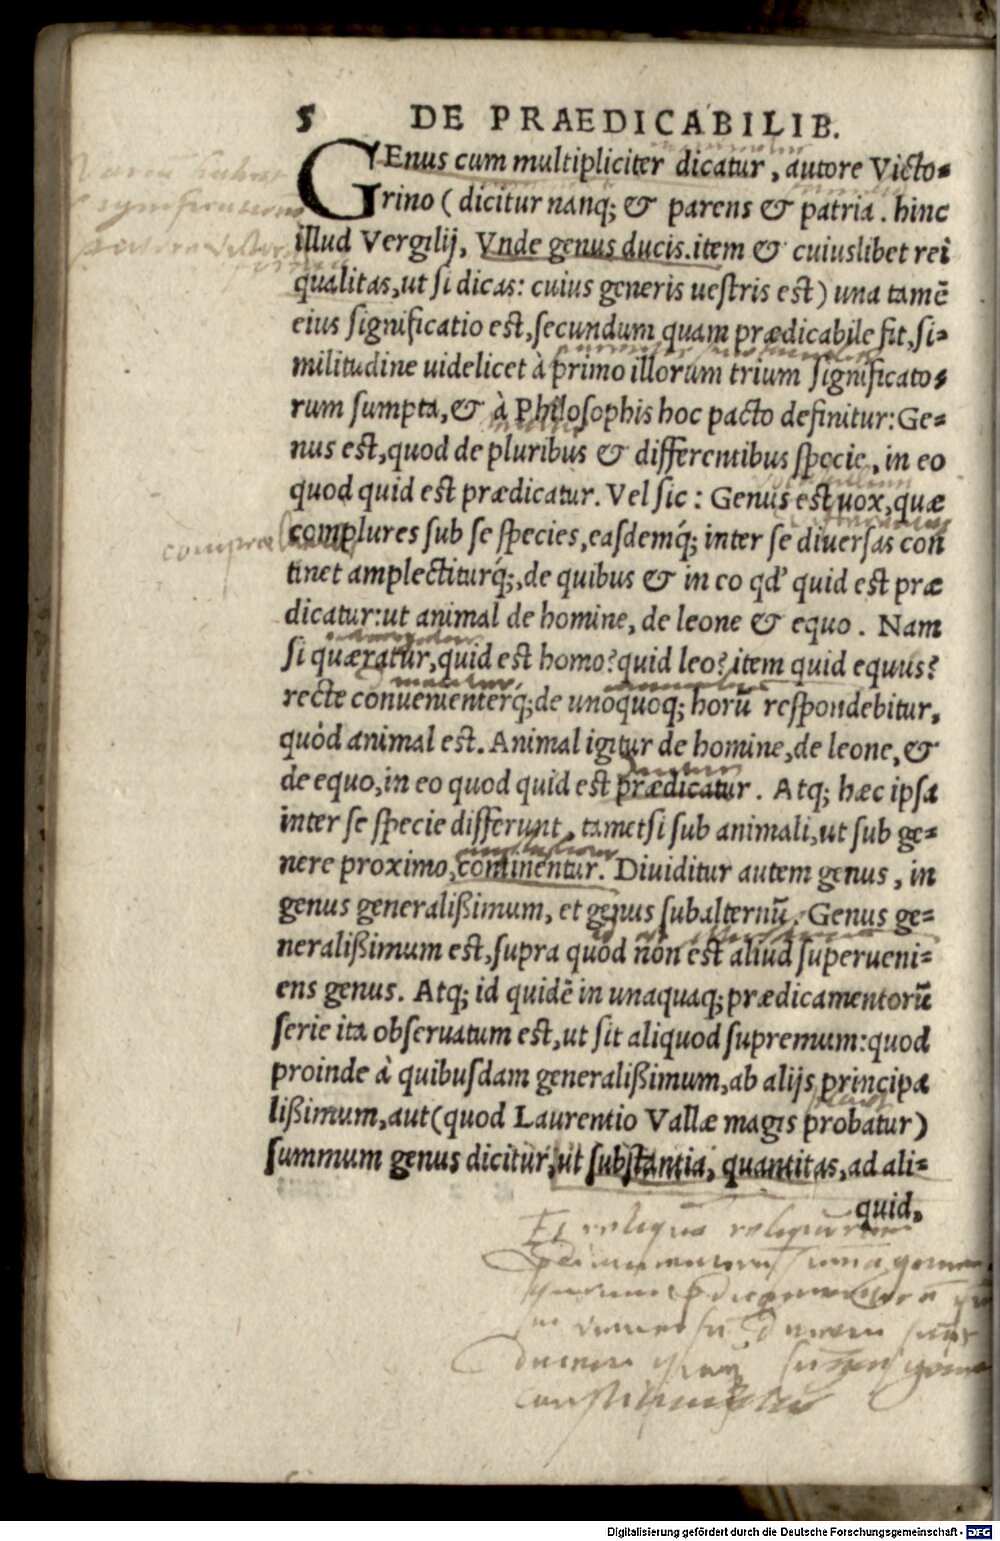 5 DE PRAEDICABILIB.
GEnus cum multipliciter dicatur, autore Victo-
rino (dicitur nanq; & parens & patria. hinc
illud Vergilij, Vnde genus ducis. item & cuiuslibet rei
qualitas, ut si dicas: cuius generis uestris est) una tamē
eius significatio est, secundum quam prædicabile fit, si-
militudine uidelicet à primo illorum trium significato-
rum sumpta, & à Philosophis hoc pacto definitur: Ge-
nus est, quod de pluribus & differentibus specie, in eo
quod quid est prædicatur. Vel sic: Genus est uox, quæ
complures sub se species, easdemq́; inter se diuersas con
tinet amplectiturq́;, de quibus & in eo qd' quid est præ
dicatur: ut animal de homine, de leone & equo. Nam
si quæratur, quid est homo? quid leo? item quid equus?
recte conuenienterq́; de unoquoq; horū respondebitur,
quòd animal est. Animal igitur de homine, de leone, &
de equo, in eo quod quid est prædicatur. Atq; hæc ipsa
inter se specie differunt, tametsi sub animali, ut sub ge-
nere proximo, continentur. Diuiditur autem genus, in
genus generalißimum, et genus subalternū. Genus ge-
neralißimum est, supra quod non est aliud superueni-
ens genus. Atq; id quidē in unaquaq; prædicamentorū
serie ita obseruatum est, ut sit aliquod supremum: quod
proinde à quibusdam generalißimum, ab alijs principa
lißimum, aut (quod Laurentio Vallæ magis probatur)
summum genus dicitur, ut substantia, quantitas, ad ali-
quid,
Digitalisierung gefördert durch die Deutsche Forschungsgemeinschaft - DFG